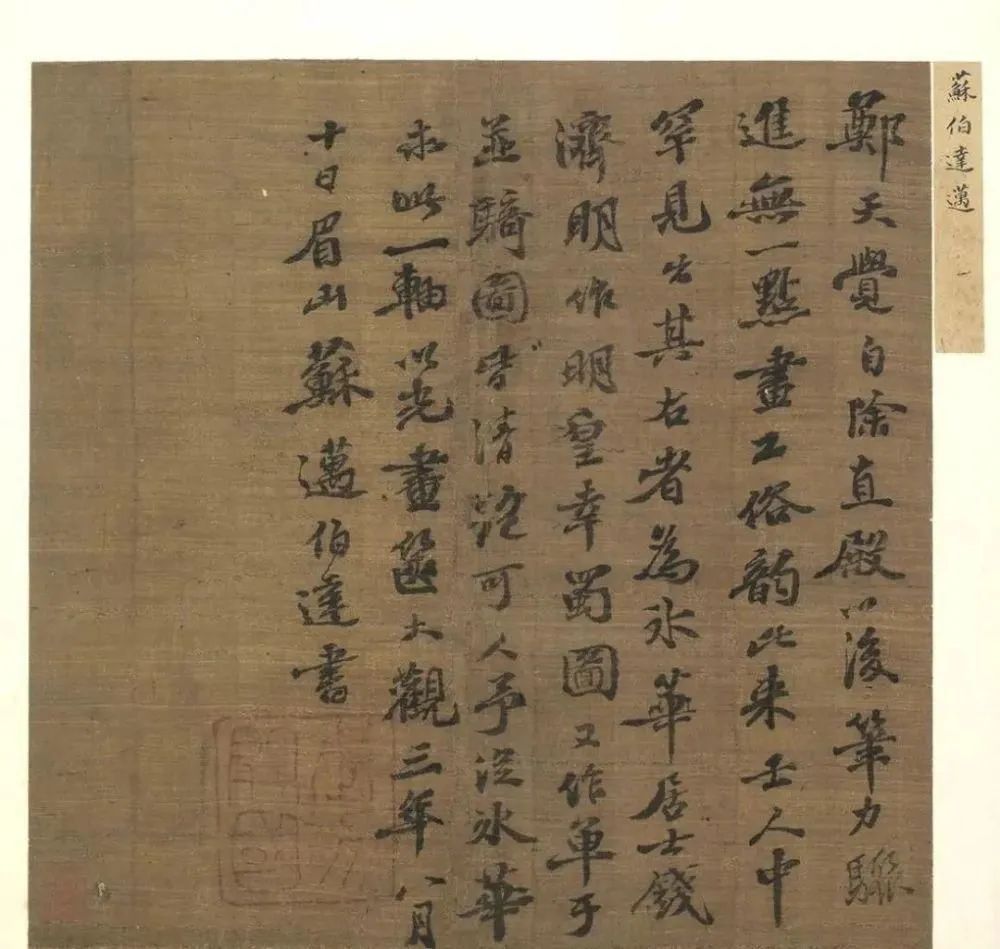 蘇伯達邁
鄭天覺自除直殿以後筆力驟
進無一點畫工俗韵比来士人中
罕見出其右者為氷華居士錢
濟明作明皇幸蜀圖又作單于
並騎圖皆清絕可人予從氷華
求此一軸以光畫篋大觀三年八月
十日眉山蘇邁伯達書